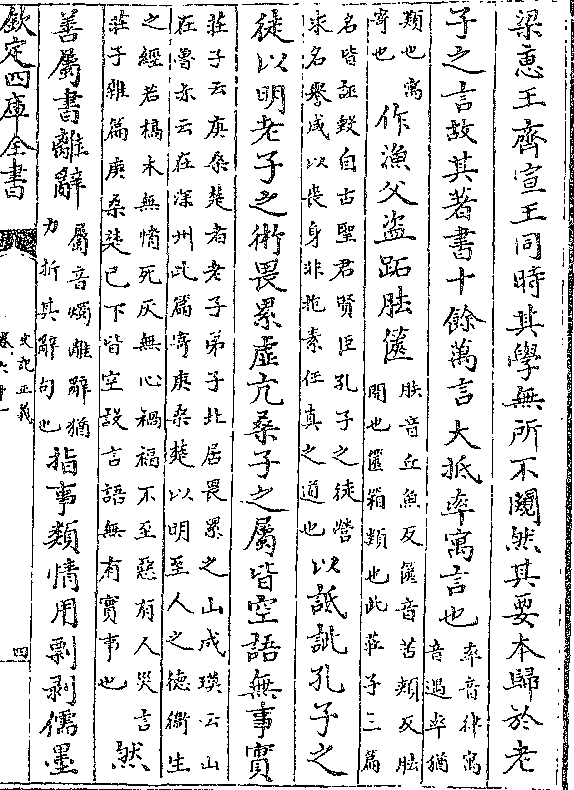 梁惠王齊宣王同時其學無所不闚然其要本歸於老
子之言故其著書十餘萬言大抵率寓言也率音律寓
音遇率猶
類也寓
寄也作漁父盜跖胠篋胠音丘魚反篋音苦頰反胠
開也篋箱類也此莊子三篇
名皆誣毀自古聖君賢臣孔子之徒營
求名譽咸以喪身非抱素任真之道也以詆訿孔子之
徒以明老子之術畏累虛亢桑子之屬皆空語無事實
莊子云庚桑楚者老子弟子北居畏累之山成璞云山
在魯亦云在深州此篇寄庚桑楚以明至人之德衞生
之經若槁木無情死灰無心禍福不至惡有人災言
莊子雜篇庚桑楚已下皆空設言語無有實事也然
善屬書離辭屬音燭離辭猶
力析其辭句也指事類情用剽剥儒墨
欽定四庫全書
史記正義
卷六十一
四